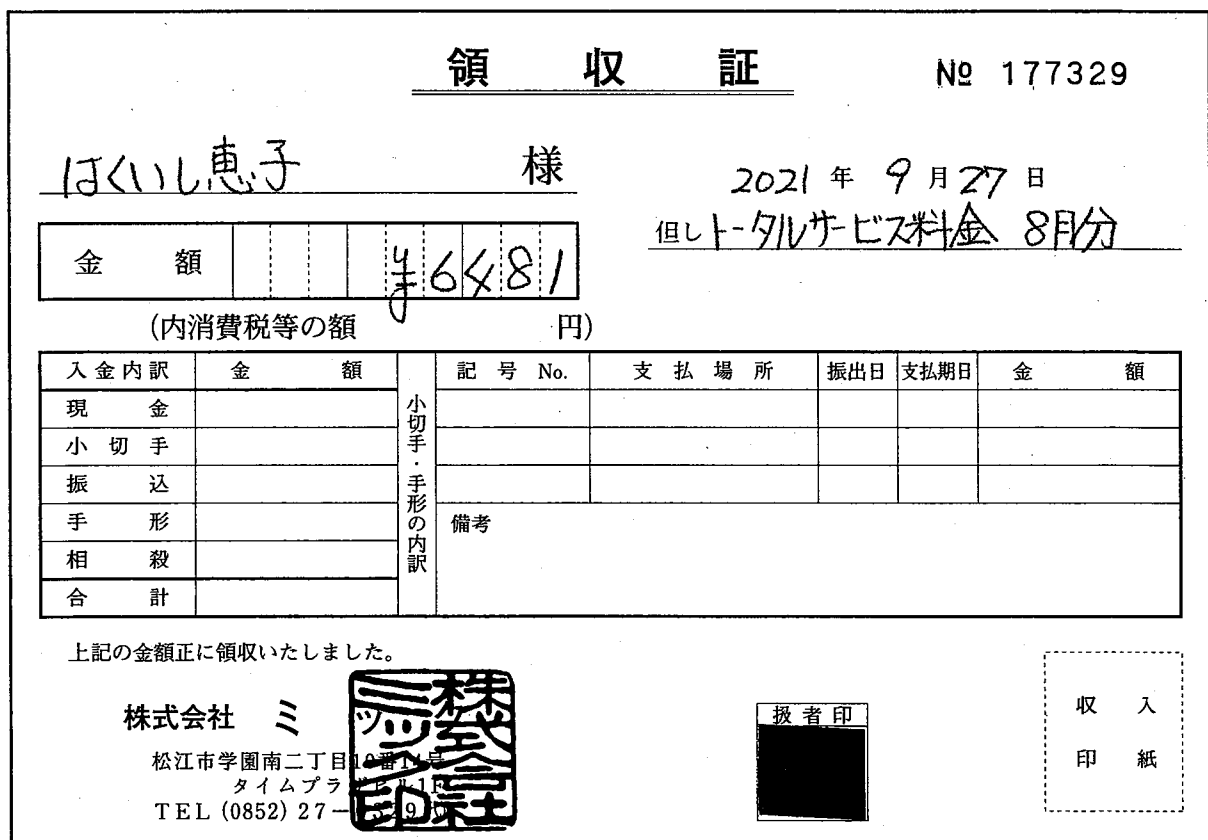 領収証
№ 177329
はくいし恵子 様
2021 年 9 月 27 日
但し トータルサービス料金 8月分
金額 ¥6481
(内消費税等の額 円)
入金内訳 金額
現金
小切手
振込
手形
相殺
合計
小切手・手形の内訳
記号 No. 支払場所 振出日 支払期日 金額
備考
上記の金額正に領収いたしました。
株式会社 ミック
松江市学園南二丁目10番14号
タイムプラザビル1F
TEL (0852) 27-
株式会社ミック印
扱者印
収入
印紙